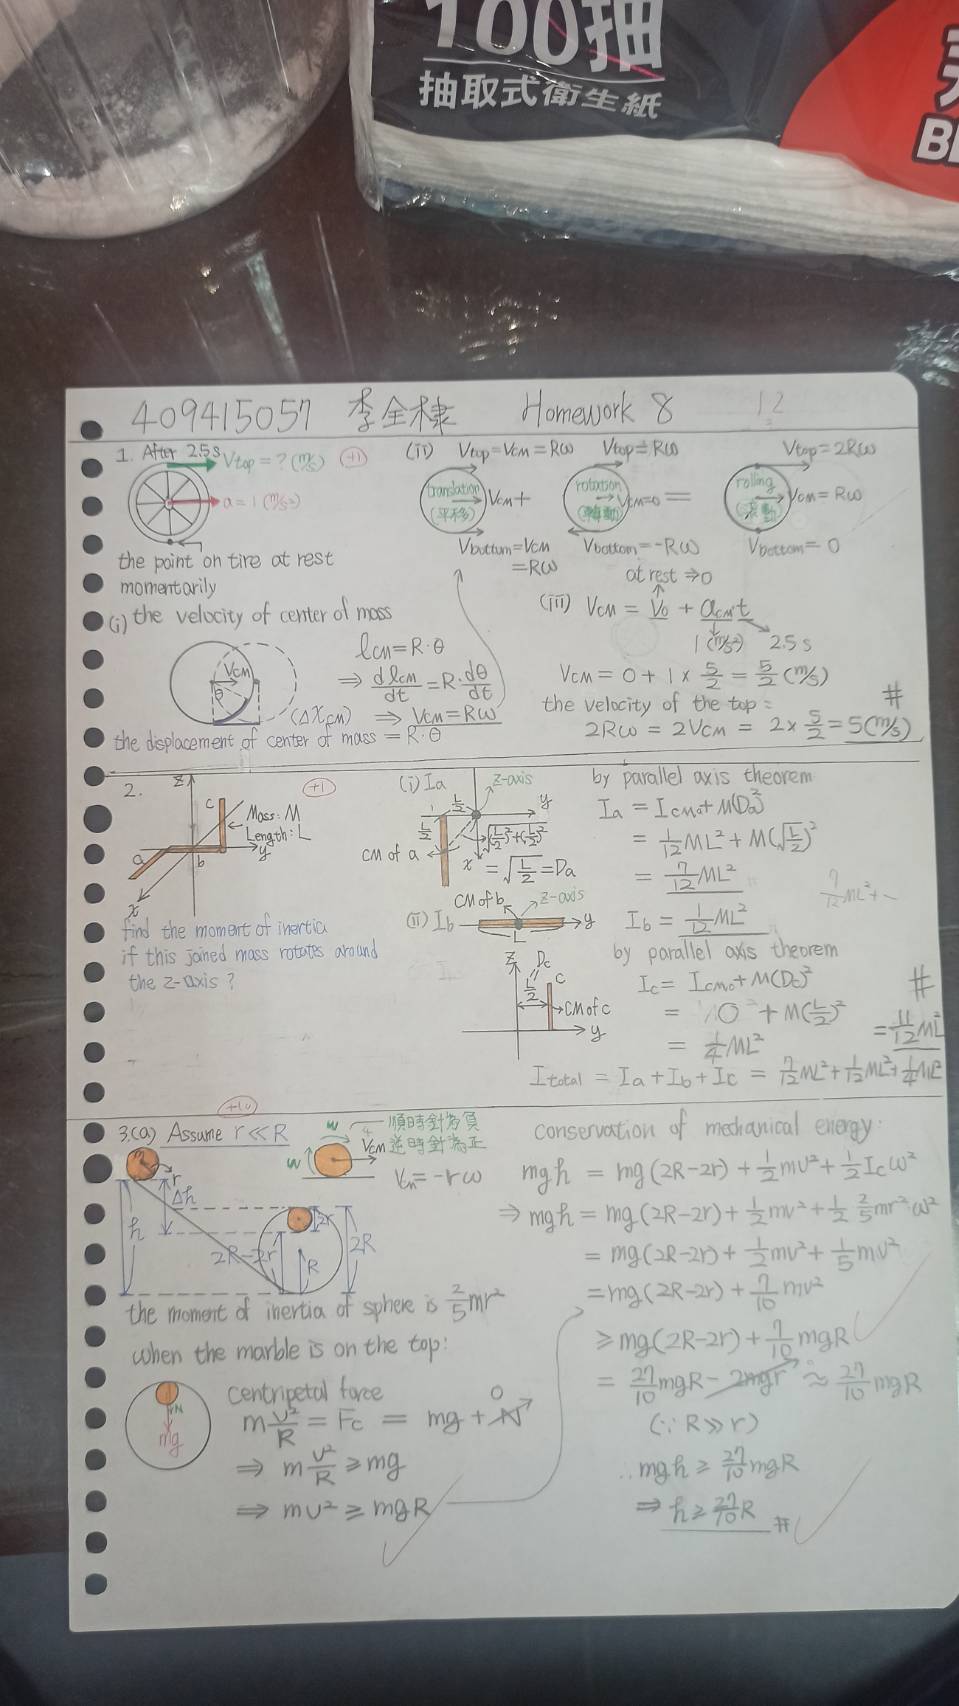 100抽
抽取式衛生紙
409415057 李全棣 Homework 8 12
1. After 2.5s Vtop = ? (m/s) (+1)
a = 1 (m/s²)
the point on tire at rest
momentarily
(i) the velocity of center of mass
VCM
θ
(ΔXCM)
lCM = R·θ
⇒ dlCM/dt = R·dθ/dt
⇒ VCM = Rω
the displacement of center of mass = R·θ
(ii) Vtop = VCM = Rω Vtop = Rω Vtop = 2Rω
translation (平移) VCM + rotation (轉動) VCM=0 = rolling (滾動) VCM = Rω
Vbuttum = VCM Vbottom = -Rω Vbottom = 0
= Rω
at rest ⇒ 0
(iii) VCM = V0 + aCM t
1 (m/s²) 2.5 s
VCM = 0 + 1 × 5/2 = 5/2 (m/s)
the velocity of the top =
2Rω = 2VCM = 2 × 5/2 = 5 (m/s) #
2. (+1)
z
c
Mass: M
Length: L
a
b
y
x
find the moment of inertia
if this joined mass rotates around
the z-axis ?
(i) Ia
z-axis
L/2
y
L/2
CM of a
√(L/2)²+(L/2)²
x = √L/2 = Da
by parallel axis theorem
Ia = ICMa + M(Da)²
= 1/12 ML² + M(√L/2)²
= 7/12 ML²
7/12 ML² +
(ii) Ib
CM of b
z-axis
y
L
Ib = 1/12 ML²
by parallel axis theorem
z Dc
L/2
c
CM of c
y
Ic = ICMc + M(Dc)²
= 0 + M(L/2)²
= 1/4 ML²
Itotal = Ia + Ib + Ic = 7/12 ML² + 1/12 ML² + 1/4 ML²
= 11/12 ML² #
(+1)
3.(a) Assume r ≪ R
ω
順時針為負
VCM 逆時針為正
ω
= -rω
m
r
Δh
h
2r
2R-2r
R
2R
the moment of inertia of sphere is 2/5 mr²
when the marble is on the top:
N
mg
centripetal force
m v²/R = Fc = mg + N 0
⇒ m v²/R ≥ mg
⇒ mv² ≥ mgR
conservation of mechanical energy:
mgh = mg(2R-2r) + 1/2 mv² + 1/2 Ic ω²
⇒ mgh = mg(2R-2r) + 1/2 mv² + 1/2 2/5 mr² ω²
= mg(2R-2r) + 1/2 mv² + 1/5 mv²
= mg(2R-2r) + 7/10 mv²
≥ mg(2R-2r) + 7/10 mgR
= 27/10 mgR - 2mgr ≈ 27/10 mgR
(∵ R ≫ r)
∴ mgh ≥ 27/10 mgR
⇒ h ≥ 27/10 R #